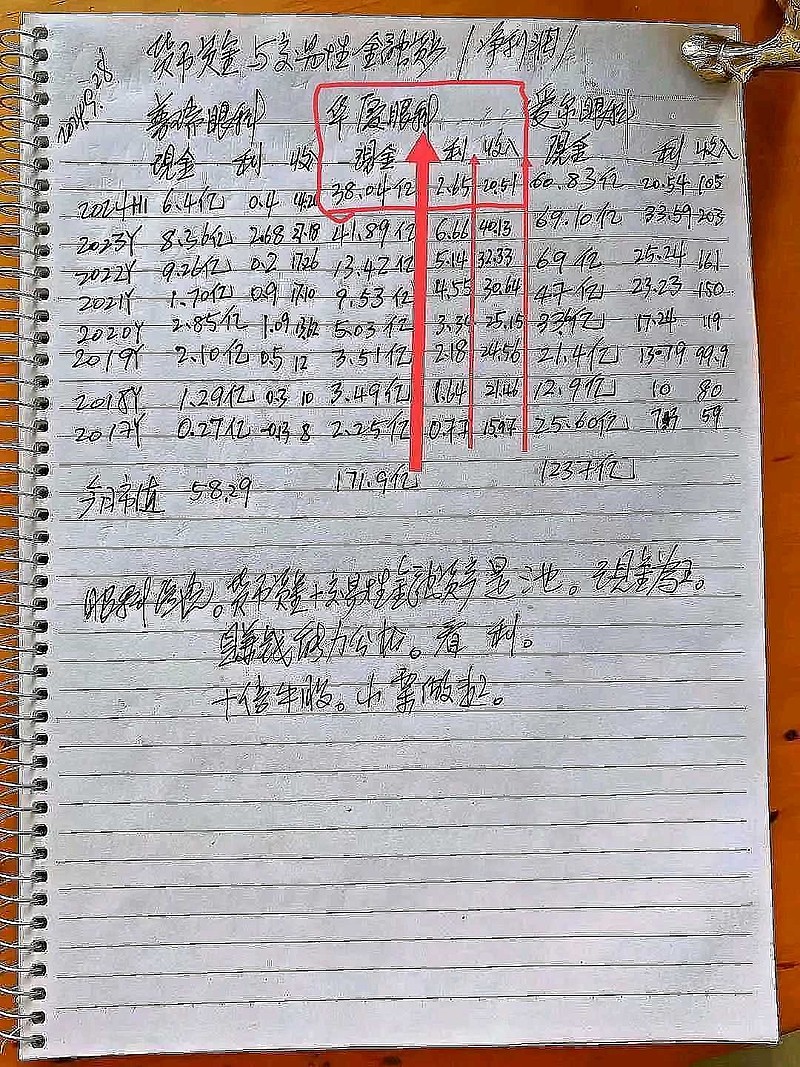 货币资金与交易性金融资产/净利润/
2024.9.28
普瑞眼科 华厦眼科 爱尔眼科
现金 利 收 现金 利 收入 现金 利 收入
2024H1 6.4亿 0.4 38.04亿 2.65 20.51 60.83亿 20.54 105
2023Y 8.36亿 2.68 27.18 41.89亿 6.66 40.13 69.10亿 33.59 203
2022Y 9.26亿 0.2 17.26 13.42亿 5.14 32.33 69亿 25.24 161
2021Y 1.70亿 0.9 17.10 9.53亿 4.55 30.64 47亿 23.23 150
2020Y 2.85亿 1.09 13.62 5.03亿 25.15 17.24 119
2019Y 2.10亿 0.5 12 3.51亿 2.18 24.56 21.4亿 13.79 99.9
2018Y 1.29亿 0.3 10 3.49亿 1.64 21.46 12.9亿 10 80
2017Y 0.27亿 -0.13 8 2.25亿 25.60亿 59
今日市值 58.29 171.9亿 1237亿
眼科医院。货币资金+交易性金融资产是 。现金为王。
赚钱能力分析。看利。
十倍牛股。小票做起。